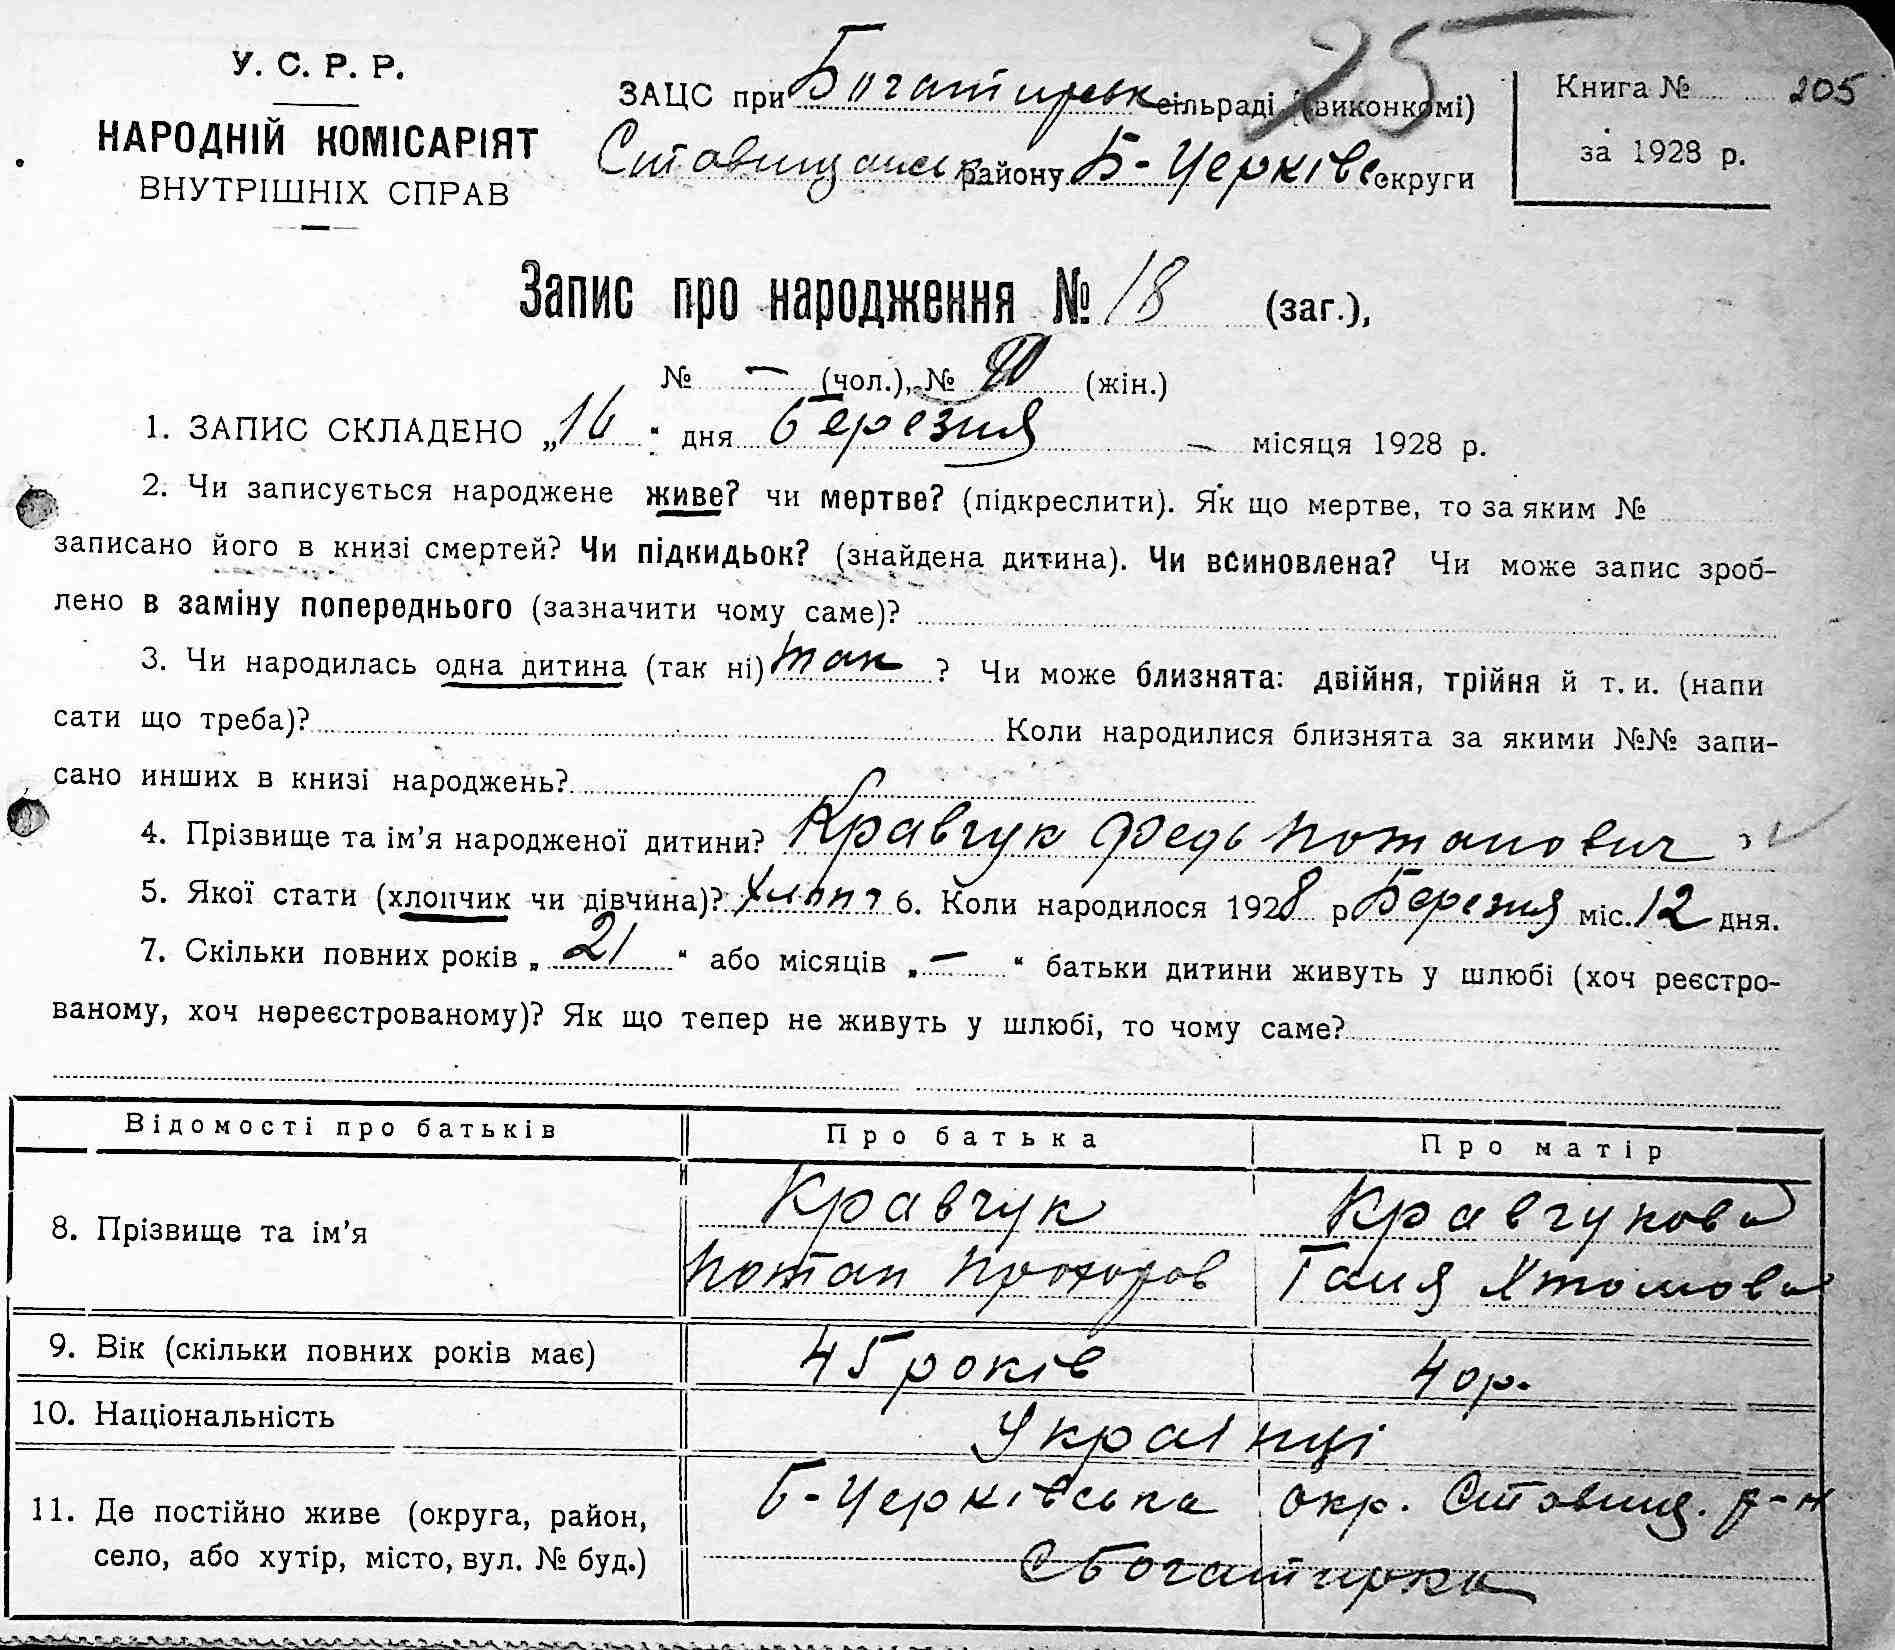 У. С. Р. Р.
НАРОДНІЙ КОМІСАРІЯТ
ВНУТРІШНІХ СПРАВ
25
ЗАЦС при Богатирськ сільраді (виконкомі)
Ставищанськ району Б-Церківс округи
Книга № 205
за 1928 р.
Запис про народження № 18 (заг.),
№ — (чол.), № (жін.)
1. ЗАПИС СКЛАДЕНО „16“ дня березня — місяця 1928 р.
2. Чи записується народжене живе? чи мертве? (підкреслити). Як що мертве, то за яким №
записано його в книзі смертей? Чи підкидьок? (знайдена дитина). Чи всиновлена? Чи може запис зроб-
лено в заміну попереднього (зазначити чому саме)?
3. Чи народилась одна дитина (так ні) так ? Чи може близнята: двійня, трійня й т. и. (напи
сати що треба)? Коли народилися близнята за якими №№ запи-
сано инших в книзі народжень?
4. Прізвище та ім’я народженої дитини? Кравчук Федь Потапович
5. Якої стати (хлопчик чи дівчина)? хлопч 6. Коли народилося 1928 р Березня міс. 12 дня.
7. Скільки повних років „ 21 “ або місяців „ — “ батьки дитини живуть у шлюбі (хоч реєстро-
ваному, хоч нереєстрованому)? Як що тепер не живуть у шлюбі, то чому саме?
Відомості про батьків Про батька Про матір
8. Прізвище та ім’я
Кравчук Кравчукова
Потап Прохоров Ганя
9. Вік (скільки повних років має) 45 років 40 р.
10. Національність Українці
11. Де постійно живе (округа, район,
село, або хутір, місто, вул. № буд.)
Б-Церківська окр. Ставищ. р-н
С Богатирка